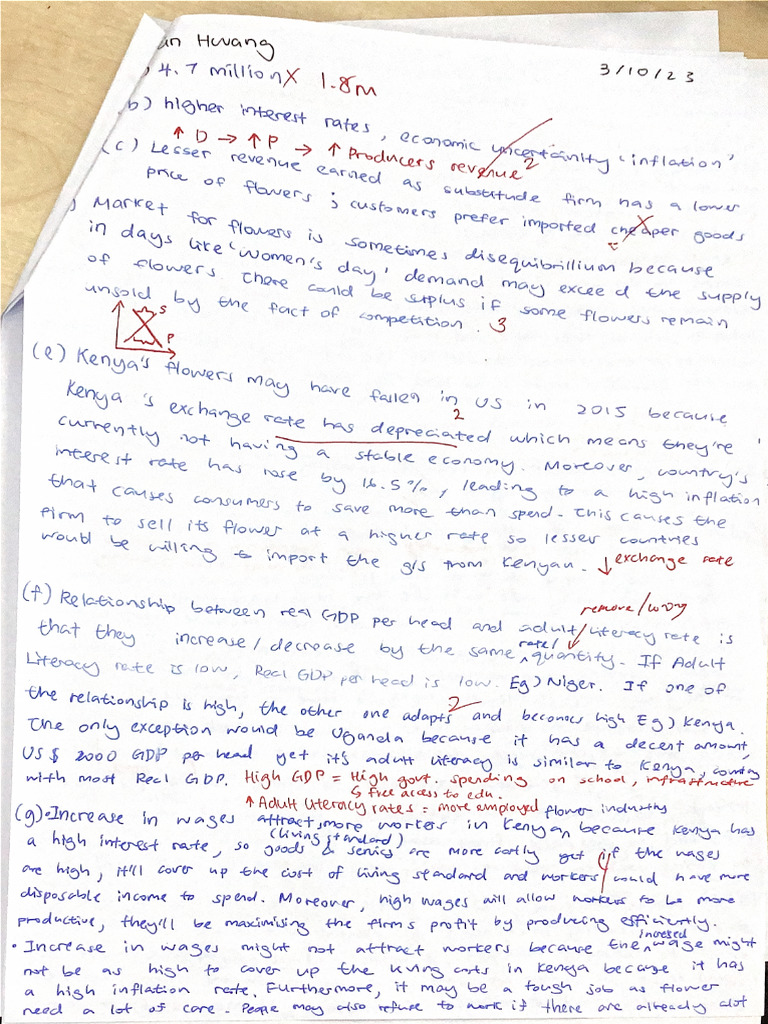 an Hwang
3/10/23
) 4.7 million X 1.8m
b) higher interest rates, economic uncertainity 'inflation'
↑ D → ↑ P → ↑ Producers revenue 2
(c) Lesser revenue earned as substitude firm has a lower
price of flowers ; customers prefer imported cheaper goods
) Market for flowers is sometimes disequibrillium because
in days like 'women's day' demand may exceed the supply
of flowers. There could be surplus if some flowers remain
unsold by the fact of competition. 3
S
P
(e) Kenya's flowers may have fallen in US in 2015 because
2
Kenya's exchange rate has depreciated which means they're
currently not having a stable economy. Moreover, country's
interest rate has rose by 16.5%, leading to a high inflation
that causes consumers to save more than spend. This causes the
firm to sell its flower at a higher rate so lesser countries
would be willing to import the g/s from Kenyan. ↓ exchange rate
remove/wrong
(f) Relationship between real GDP per head and adult literacy rate is
that they increase/decrease by the same rate/ quantity. If Adult
Literacy rate is low, Real GDP per head is low. Eg) Niger. If one of
the relationship is high, the other one adapts 2 and becomes high Eg) Kenya.
The only exception would be Uganda because it has a decent amount,
US $ 2000 GDP per head yet it's adult literacy is similar to Kenya, country
with most Real GDP. High GDP = High govt. spending on school, infrastructure
↳ free access to edu.
↑ Adult literacy rates = more employed flower industry
(g) • Increase in wages attract more workers in Kenyan, because Kenya has
a high interest rate, so goods & services are more costly yet if the wages
(living standard)
are high, it'll cover up the cost of living standard and workers could have more
disposable income to spend. Moreover, high wages will allow workers to be more
productive, they'll be maximising the firm's profit by producing efficiently.
• Increase in wages might not attract workers because the incresed wage might
not be as high to cover up the living costs in Kenya because it has
a high inflation rate. Furthermore, it may be a tough job as flower
need a lot of care. People may also refuse to work if there are already alot